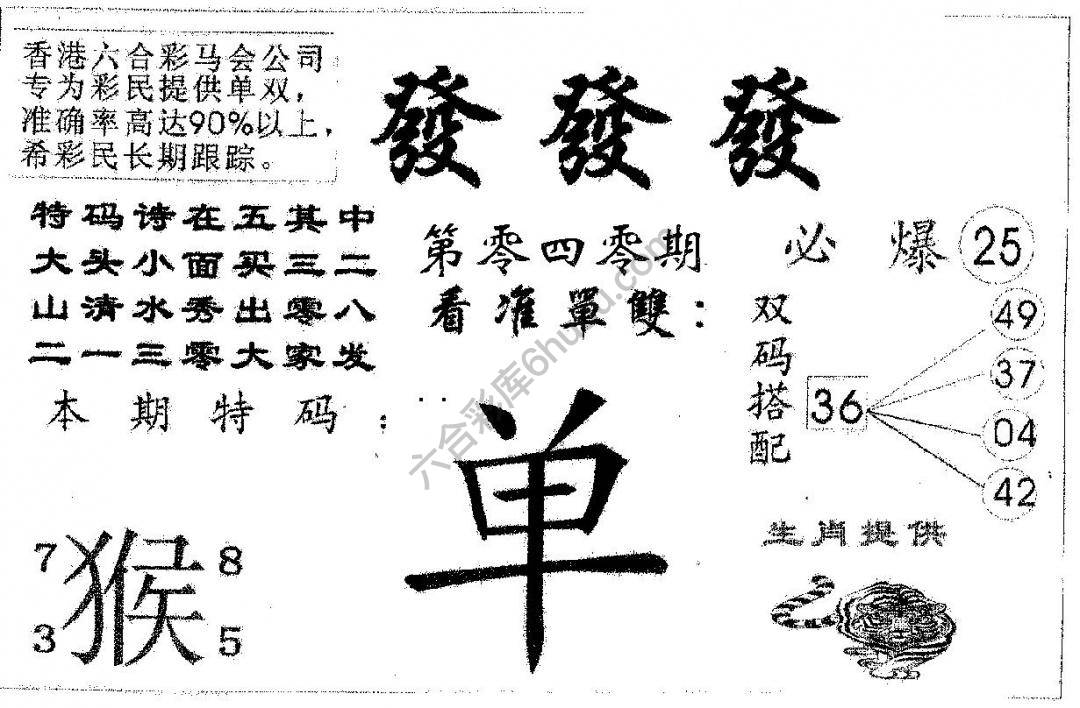 香港六合彩马会公司
专为彩民提供单双，
准确率高达90%以上，
希彩民长期跟踪。
發發發
特码诗在五其中
大头小面买三二
山清水秀出零八
二一三零大家发
第零四零期
看准單雙：
必爆25
双码搭配
36
49
37
04
42
本期特码：
单
7猴8
3 5
生肖提供
六合彩库6huku.com